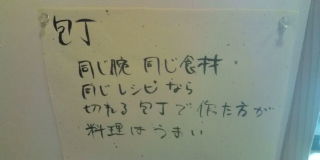 包丁
同じ腕 同じ食材
同じレシピなら
切れる包丁で作た方が
料理はうまい